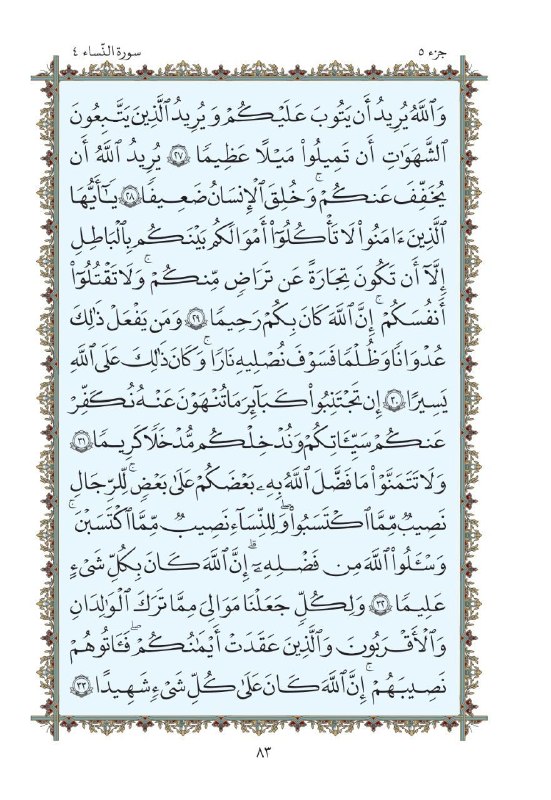 جزء ٥ سورة النّساء ٤
وَٱللَّهُ يُرِيدُ أَن يَتُوبَ عَلَيْكُمْ وَيُرِيدُ ٱلَّذِينَ يَتَّبِعُونَ
ٱلشَّهَوَٰتِ أَن تَمِيلُوا۟ مَيْلًا عَظِيمًا ٢٧ يُرِيدُ ٱللَّهُ أَن
يُخَفِّفَ عَنكُمْ ۚ وَخُلِقَ ٱلْإِنسَٰنُ ضَعِيفًا ٢٨ يَٰٓأَيُّهَا
ٱلَّذِينَ ءَامَنُوا۟ لَا تَأْكُلُوٓا۟ أَمْوَٰلَكُم بَيْنَكُم بِٱلْبَٰطِلِ
إِلَّآ أَن تَكُونَ تِجَٰرَةً عَن تَرَاضٍ مِّنكُمْ ۚ وَلَا تَقْتُلُوٓا۟
أَنفُسَكُمْ ۚ إِنَّ ٱللَّهَ كَانَ بِكُمْ رَحِيمًا ٢٩ وَمَن يَفْعَلْ ذَٰلِكَ
عُدْوَٰنًا وَظُلْمًا فَسَوْفَ نُصْلِيهِ نَارًا ۚ وَكَانَ ذَٰلِكَ عَلَى ٱللَّهِ
يَسِيرًا ٣٠ إِن تَجْتَنِبُوا۟ كَبَآئِرَ مَا تُنْهَوْنَ عَنْهُ نُكَفِّرْ
عَنكُمْ سَيِّـَٔاتِكُمْ وَنُدْخِلْكُم مُّدْخَلًا كَرِيمًا ٣١
وَلَا تَتَمَنَّوْا۟ مَا فَضَّلَ ٱللَّهُ بِهِۦ بَعْضَكُمْ عَلَىٰ بَعْضٍ ۚ لِّلرِّجَالِ
نَصِيبٌ مِّمَّا ٱكْتَسَبُوا۟ ۖ وَلِلنِّسَآءِ نَصِيبٌ مِّمَّا ٱكْتَسَبْنَ ۚ
وَسْـَٔلُوا۟ ٱللَّهَ مِن فَضْلِهِۦٓ ۗ إِنَّ ٱللَّهَ كَانَ بِكُلِّ شَىْءٍ
عَلِيمًا ٣٢ وَلِكُلٍّ جَعَلْنَا مَوَٰلِىَ مِمَّا تَرَكَ ٱلْوَٰلِدَانِ
وَٱلْأَقْرَبُونَ ۚ وَٱلَّذِينَ عَقَدَتْ أَيْمَٰنُكُمْ ۖ فَـَٔاتُوهُمْ
نَصِيبَهُمْ ۚ إِنَّ ٱللَّهَ كَانَ عَلَىٰ كُلِّ شَىْءٍ شَهِيدًا ٣٣
٨٣